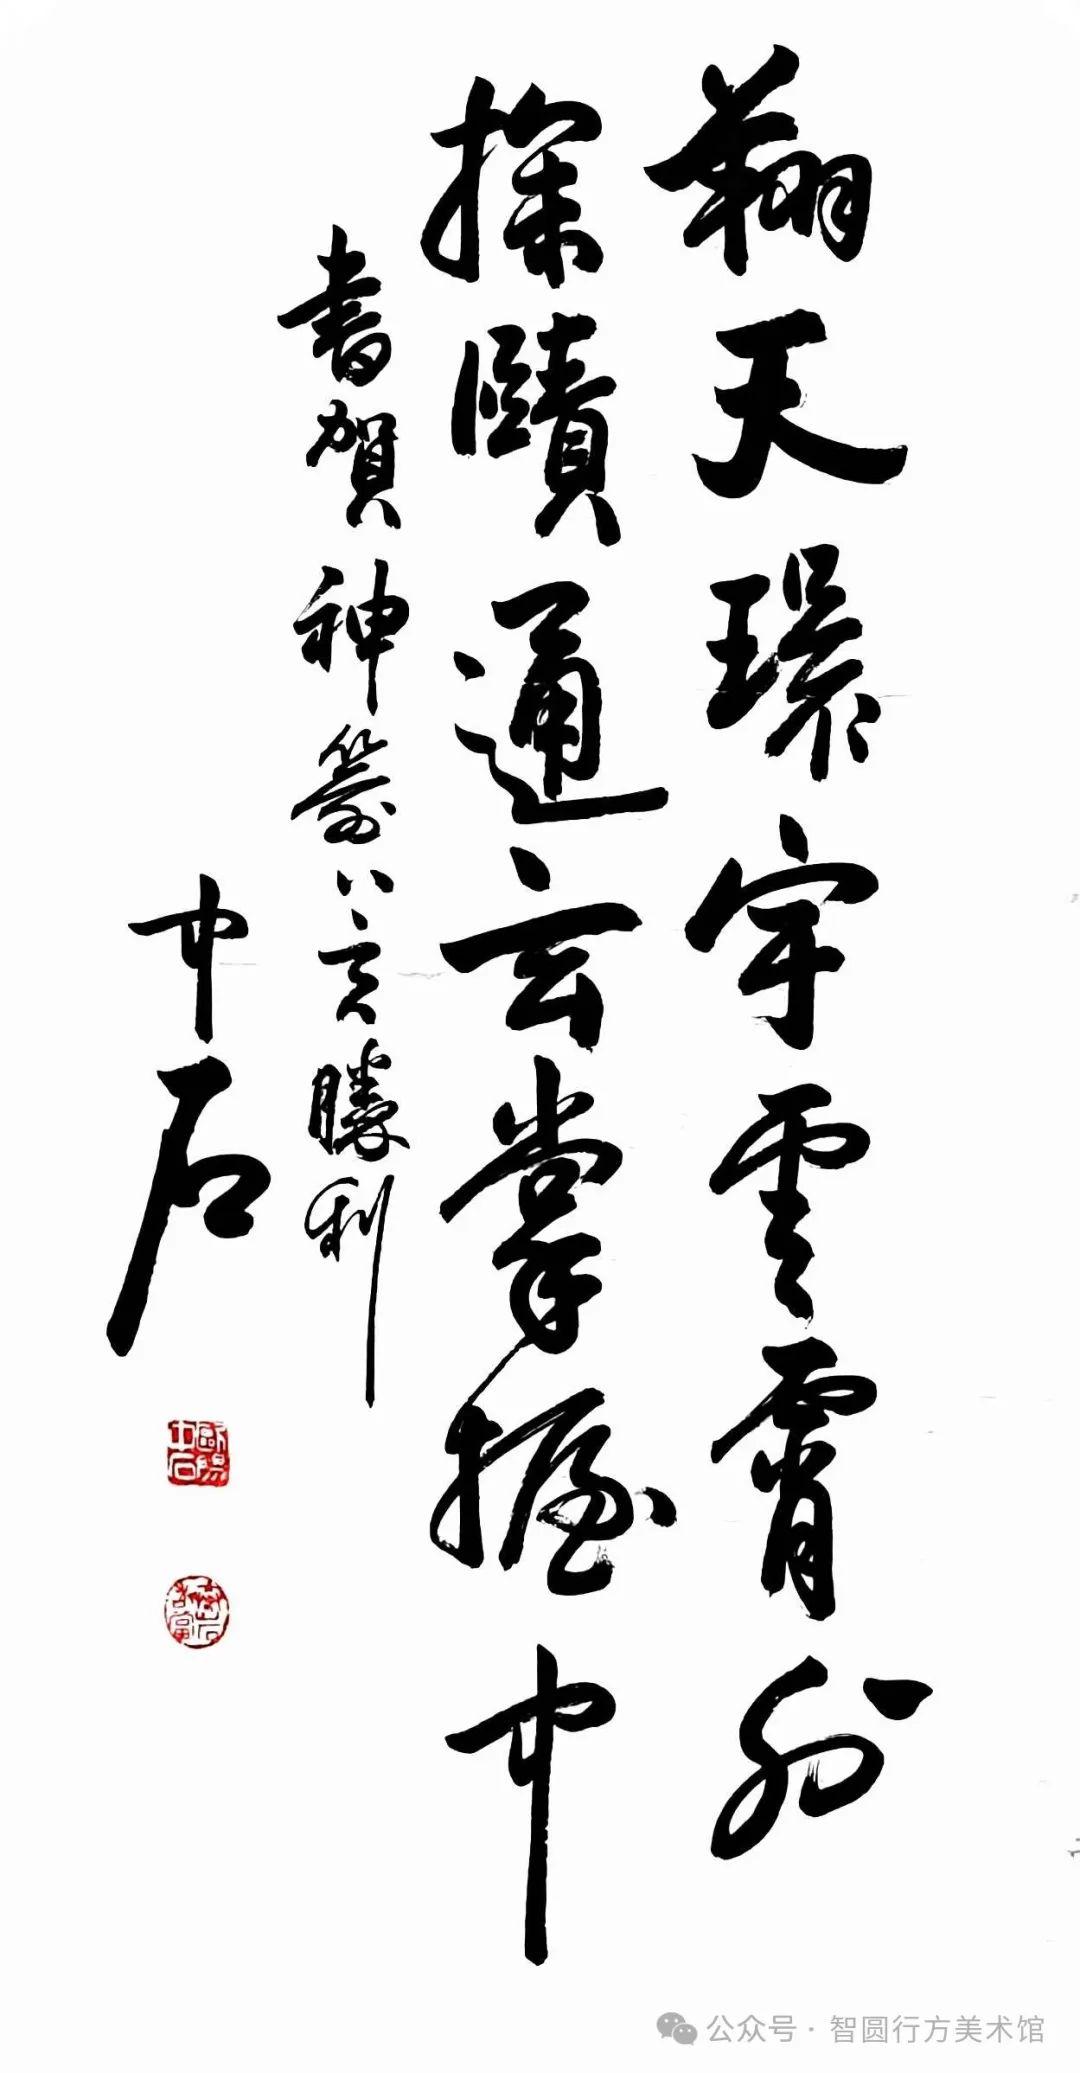 翔天環宇雲霄外
探賾通玄掌握中
書賀神箭勝利
中石
歐陽中石
公众号·智圆行方美术馆